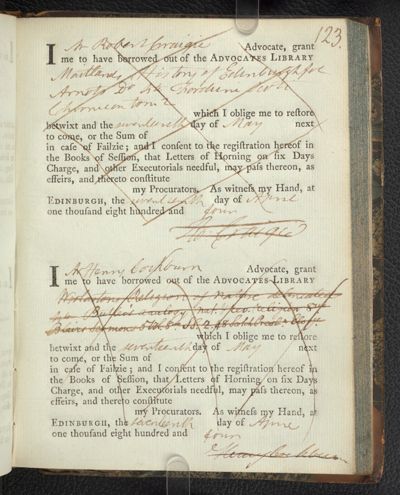 123.
I Mr Robert Craigie Advocate, grant
me to have borrowed out of the ADVOCATES LIBRARY
Maitlands History of Edinburgh fol
Arnots Do 4to Fordun Scoti
Chronicon tom 2
which I oblige me to reſtore
betwixt and the seventeenth day of May next
to come, or the Sum of
in caſe of Failzie; and I conſent to the regiſtration hereof in
the Books of Seſſion, that Letters of Horning on ſix Days
Charge, and other Executorials needful, may paſs thereon, as
effeirs, and thereto conſtitute
my Procurators. As witneſs my Hand, at
EDINBURGH, the seventeenth day of April
one thouſand eight hundred and four
Ro Craigie
I Mr Henry Cockburn Advocate, grant
me to have borrowed out of the ADVOCATES LIBRARY
Religion of Nature delineated
Blair's Sermons
which I oblige me to reſtore
betwixt and the seventeenth day of May next
to come, or the Sum of
in caſe of Failzie; and I conſent to the regiſtration hereof in
the Books of Seſſion, that Letters of Horning on ſix Days
Charge, and other Executorials needful, may paſs thereon, as
effeirs, and thereto conſtitute
my Procurators. As witneſs my Hand, at
EDINBURGH, the seventeenth day of April
one thouſand eight hundred and four
Henry Cockburn